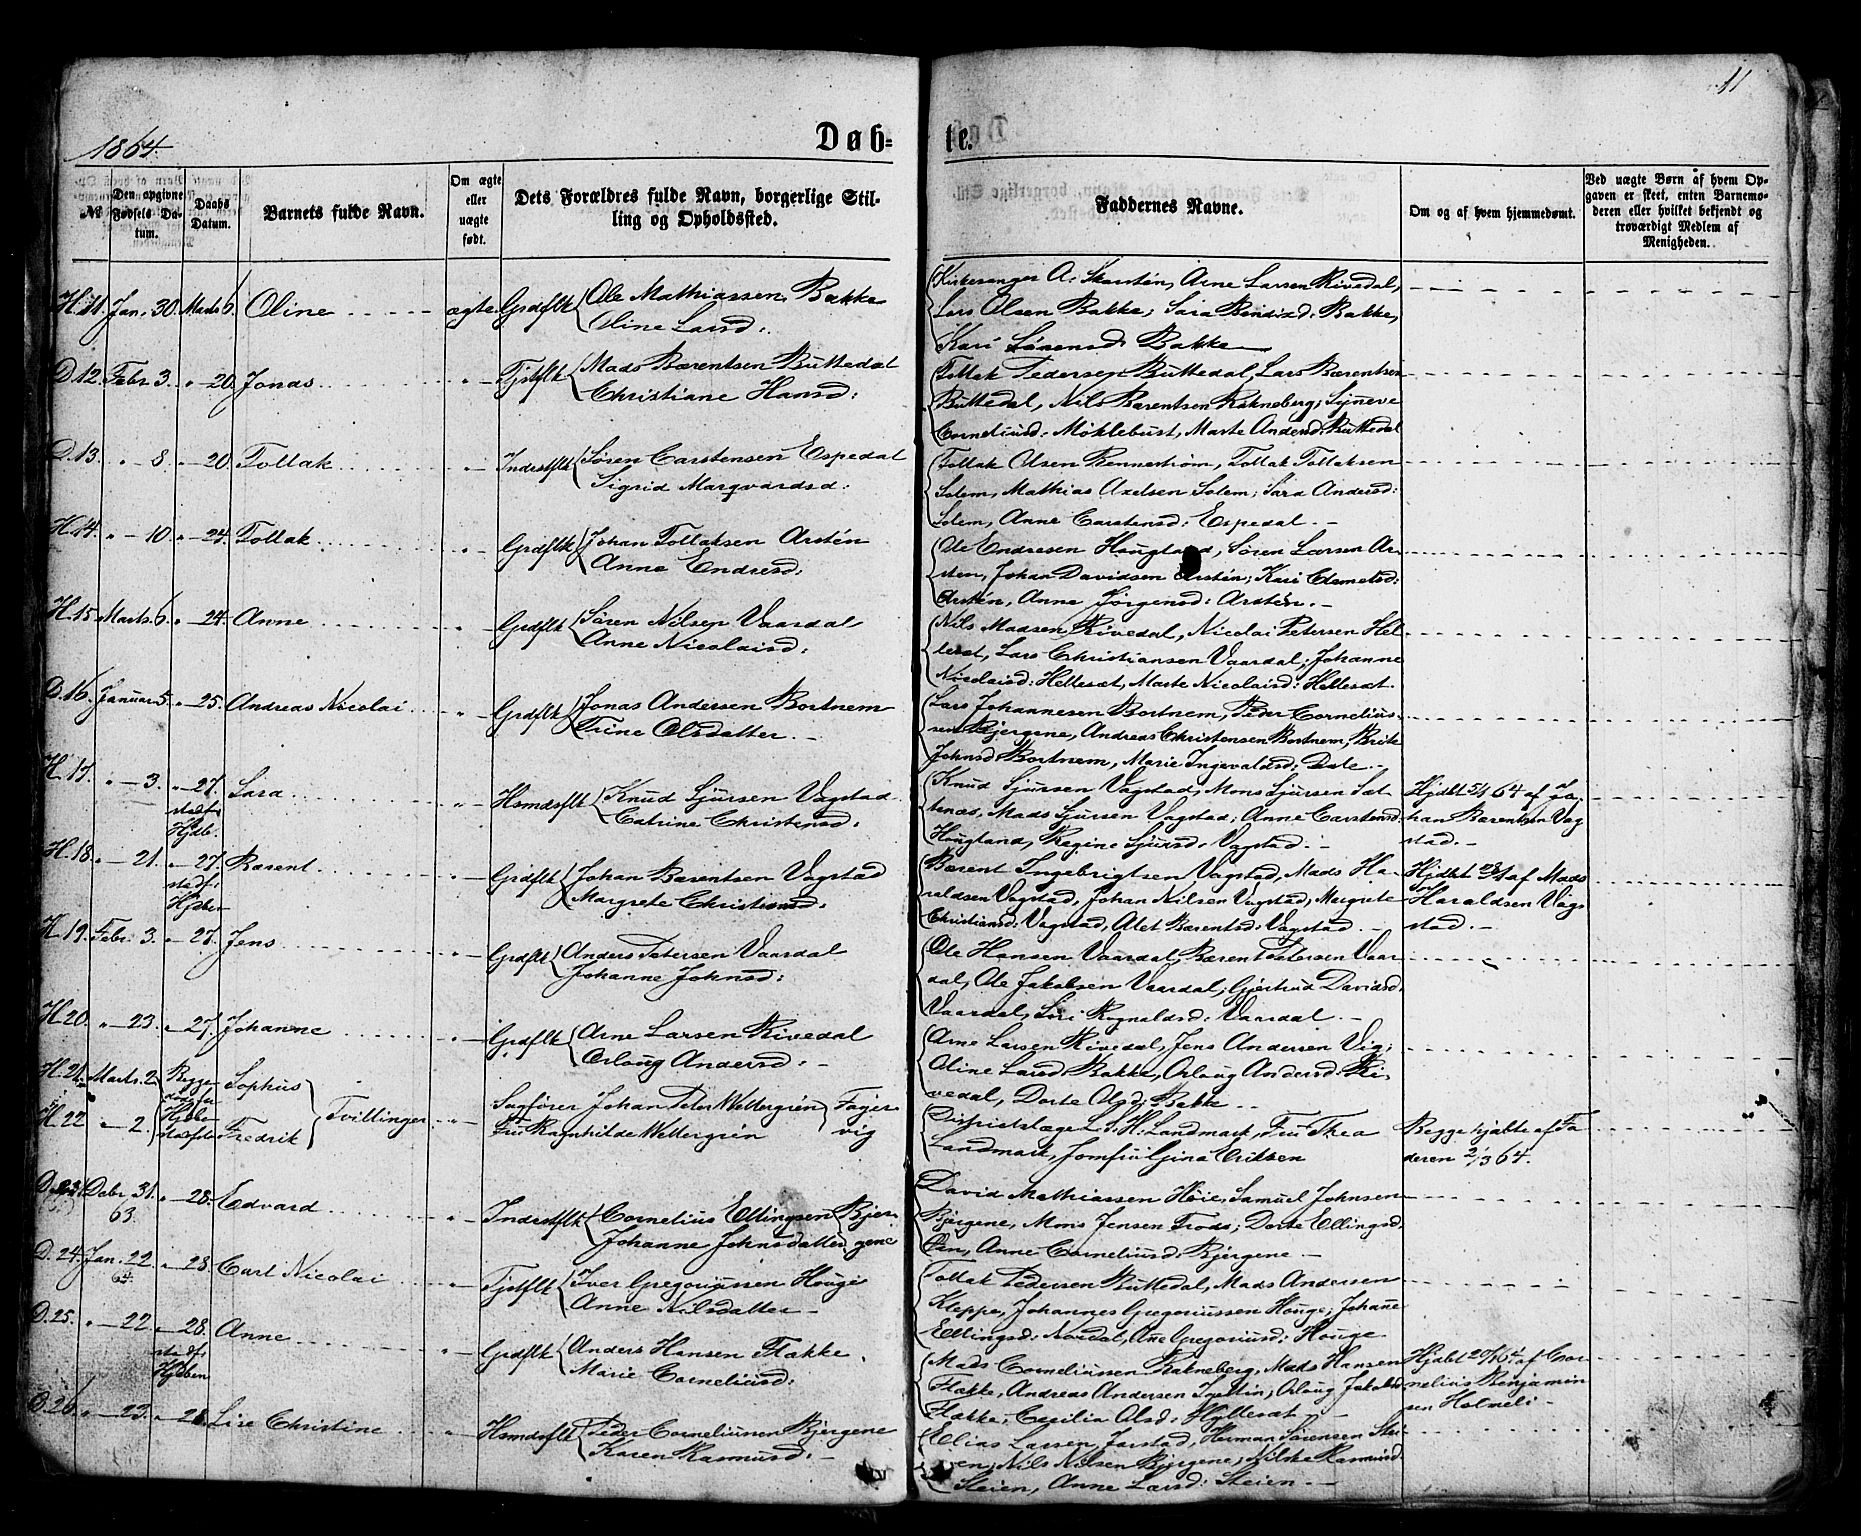 11
1864.
Døb-
te.
№
Den opgivne Fødsels Datum.
Daabs Datum.
Barnets fulde Navn.
Om ægte eller uægte født.
Dets Forældres fulde Navn, borgerlige Stilling og Opholdssted.
Faddernes Navne.
Om og af hvem hjemmedøbt.
Ved uægte Børn af hvem Opgaven er skeet, enten Barnemoderen eller hvilket bekjendt og troværdigt Medlem af Menigheden.
H. 11. Jan. 30. Marts 6. Oline ægte Grdflk Ole Mathiassen Bakke
Oline Larsd:
Kirkesanger A. Skarstén, Arne Larsen Rivedal,
Lars Olsen Bakke; Sara Bendixd: Bakke,
Kari Sørensd: Bakke
D. 12. Febr. 3. " - 20. Jonas " Tjstflk Mads Bærentsen Buttedal
Christiane Hansd:
Tollak Pedersen Buttedal, Lars Bærentsen
Buttedal, Nils Bærentsen Rakneberg; Synneve
Corneliusd: Møklebust, Marte Andersd: Buttedal
D. 13. " - 8. " - 20. Tollak " Inderstflk Søren Carstensen Espedal
Sigrid Margvardsd:
Tollak Olsen Rennestrøm, Tollak Tollaksen
Solem, Mathias Axelsen Solem; Sara Andersd:
Solem, Anne Carstensd: Espedal. -
H. 14. " - 10. " - 24. Tollak " Grdflk Johan Tollaksen Arstén
Anne Endresd:
Ole Endresen Hougland, Søren Larsen Ar-
sten, Johan Davidsen Arstén; Kari Clemetsd:
Arstén, Anne Jørgensd: Arstén. -
H. 15. Marts 6. " - 24. Anne " Grdflk Søren Nilsen Vaardal
Anne Nicolaisd:
Nils Madsen Rivedal, Nicolai Petersen Hel-
lesæt, Lars Christiansen Vaardal; Johanne
Nicolaisd: Hellesæt, Marte Nicolaisd: Hellesæt.
D. 16. Januar 5. " - 25. Andreas Nicolai " Grdflk Jonas Andersen Bortnem
Trine Olsdatter. -
Lars Johannesen Bortnem, Peder Cornelius-
sen Bjergene, Andreas Christensen Bortnem, Brite
Johnsd Bortnem, Marie Ingevaldsd: Dale. -
H. 17. " - 3. " - 27. Sara " Hsmdsflk Knud Sjursen Vagstad
stadf. Hjdb. Catrine Christensd:
Knud Sjursen Vagstad, Mons Sjursen Sæt-
tenæs, Mads Sjursen Vagstad; Anne Carstensd:
Hougland, Regine Sjursd: Vagstad. -
Hjdbt 5/1 64 af Jo-
han Bærentsen Vag
stad. -
H. 18. " - 21. " - 27. Bærent " Grdflk Johan Bærentsen Vagstad
stadf: Hjdben Margrete Christiansd:
Bærent Ingebrigtsen Vagstad, Mads Ha-
raldsen Vagstad, Johan Nilsen Vagstad, Margrete
Christiansd: Vagstad, Alet Bærentsd: Vagstad. -
Hjdbt af Mads
Haraldsen Vag
stad. -
H. 19. Febr. 3. " - 27. Jens " Grdflk Anders Petersen Vaardal
Johanne Johnsd:
Ole Hansen Vaardal, Bærent Petersen Vaar-
dal, Ole Jakobsen Vaardal; Gjertrud Davidsd:
Vaardal, Siri Rognaldsd: Vaardal. -
H. 20. " - 23. " - 27. Johanne " Grdflk Arne Larsen Rivedal
Orloug Andersd: -
Arne Larsen Rivedal, Jens Andersen Vig;
Oline Larsd: Bakke, Orloug Andersd: Ri-
vedal, Dorte Olsd: Bakke. -
H. 21. Marts 2. Begge Sophus
H. 22 " - 2. Fredrik Tvillinger " Sagfører Johan Peter Wettergrén
Fru Ragnhilde Wettergrén Fager
vig
Distriktslæge S. H. Landmark, Fru Thea
Landmark, Jomfru Gina Eriksen
Begge hjdbte af Fa
deren 2/3 64.
D. 23. Debr. 31. 63. " - 28. Edvard " Inderstflk Cornelius Ellingsen Bjer-
Johanne Johnsdatter gene
David Mathiassen Høie, Samuel Johnsen
Bjergene, Mons Jensen Fross; Dorte Ellingsd.
Øen, Anne Corneliusd: Bjergene. -
D. 24. Jan. 22. 64. " - 28. Carl Nicolai " Tjstflk Iver Gregoriussen Houge
Anne Nilsdatter -
Tollak Pedersen Buttedal, Mads Andersen
Kleppe, Johannes Gregoriussen Houge; Johanne
Ellingsd: Nordal, Ane Gregoriusd: Houge
D. 25. " - 22. " - 28. Anne " Grdflk Anders Hansen Flække.
stadf. Hjdben Marie Corneliusd:
Mads Corneliussen Rakneberg, Mads Hansen
Flække, Andreas Andersen; Orloug Jakobsd
Flække, Cecilia Olsd: Hyllesæt -
Hjdbt af Cor-
nelius Benjamin
sen Holmeli -
D. 26. " - 23. " - 28. Lise Christine " Hsmdsflk Peder Corneliussen Bjergene
Karen Rasmusd: -
Elias Larsen Jarstad, Herman Sørensen Stei-
en, Nils Nilsen Bjergene; Nilske Rasmusd:
Steien, Anne Larsd: Steien. -